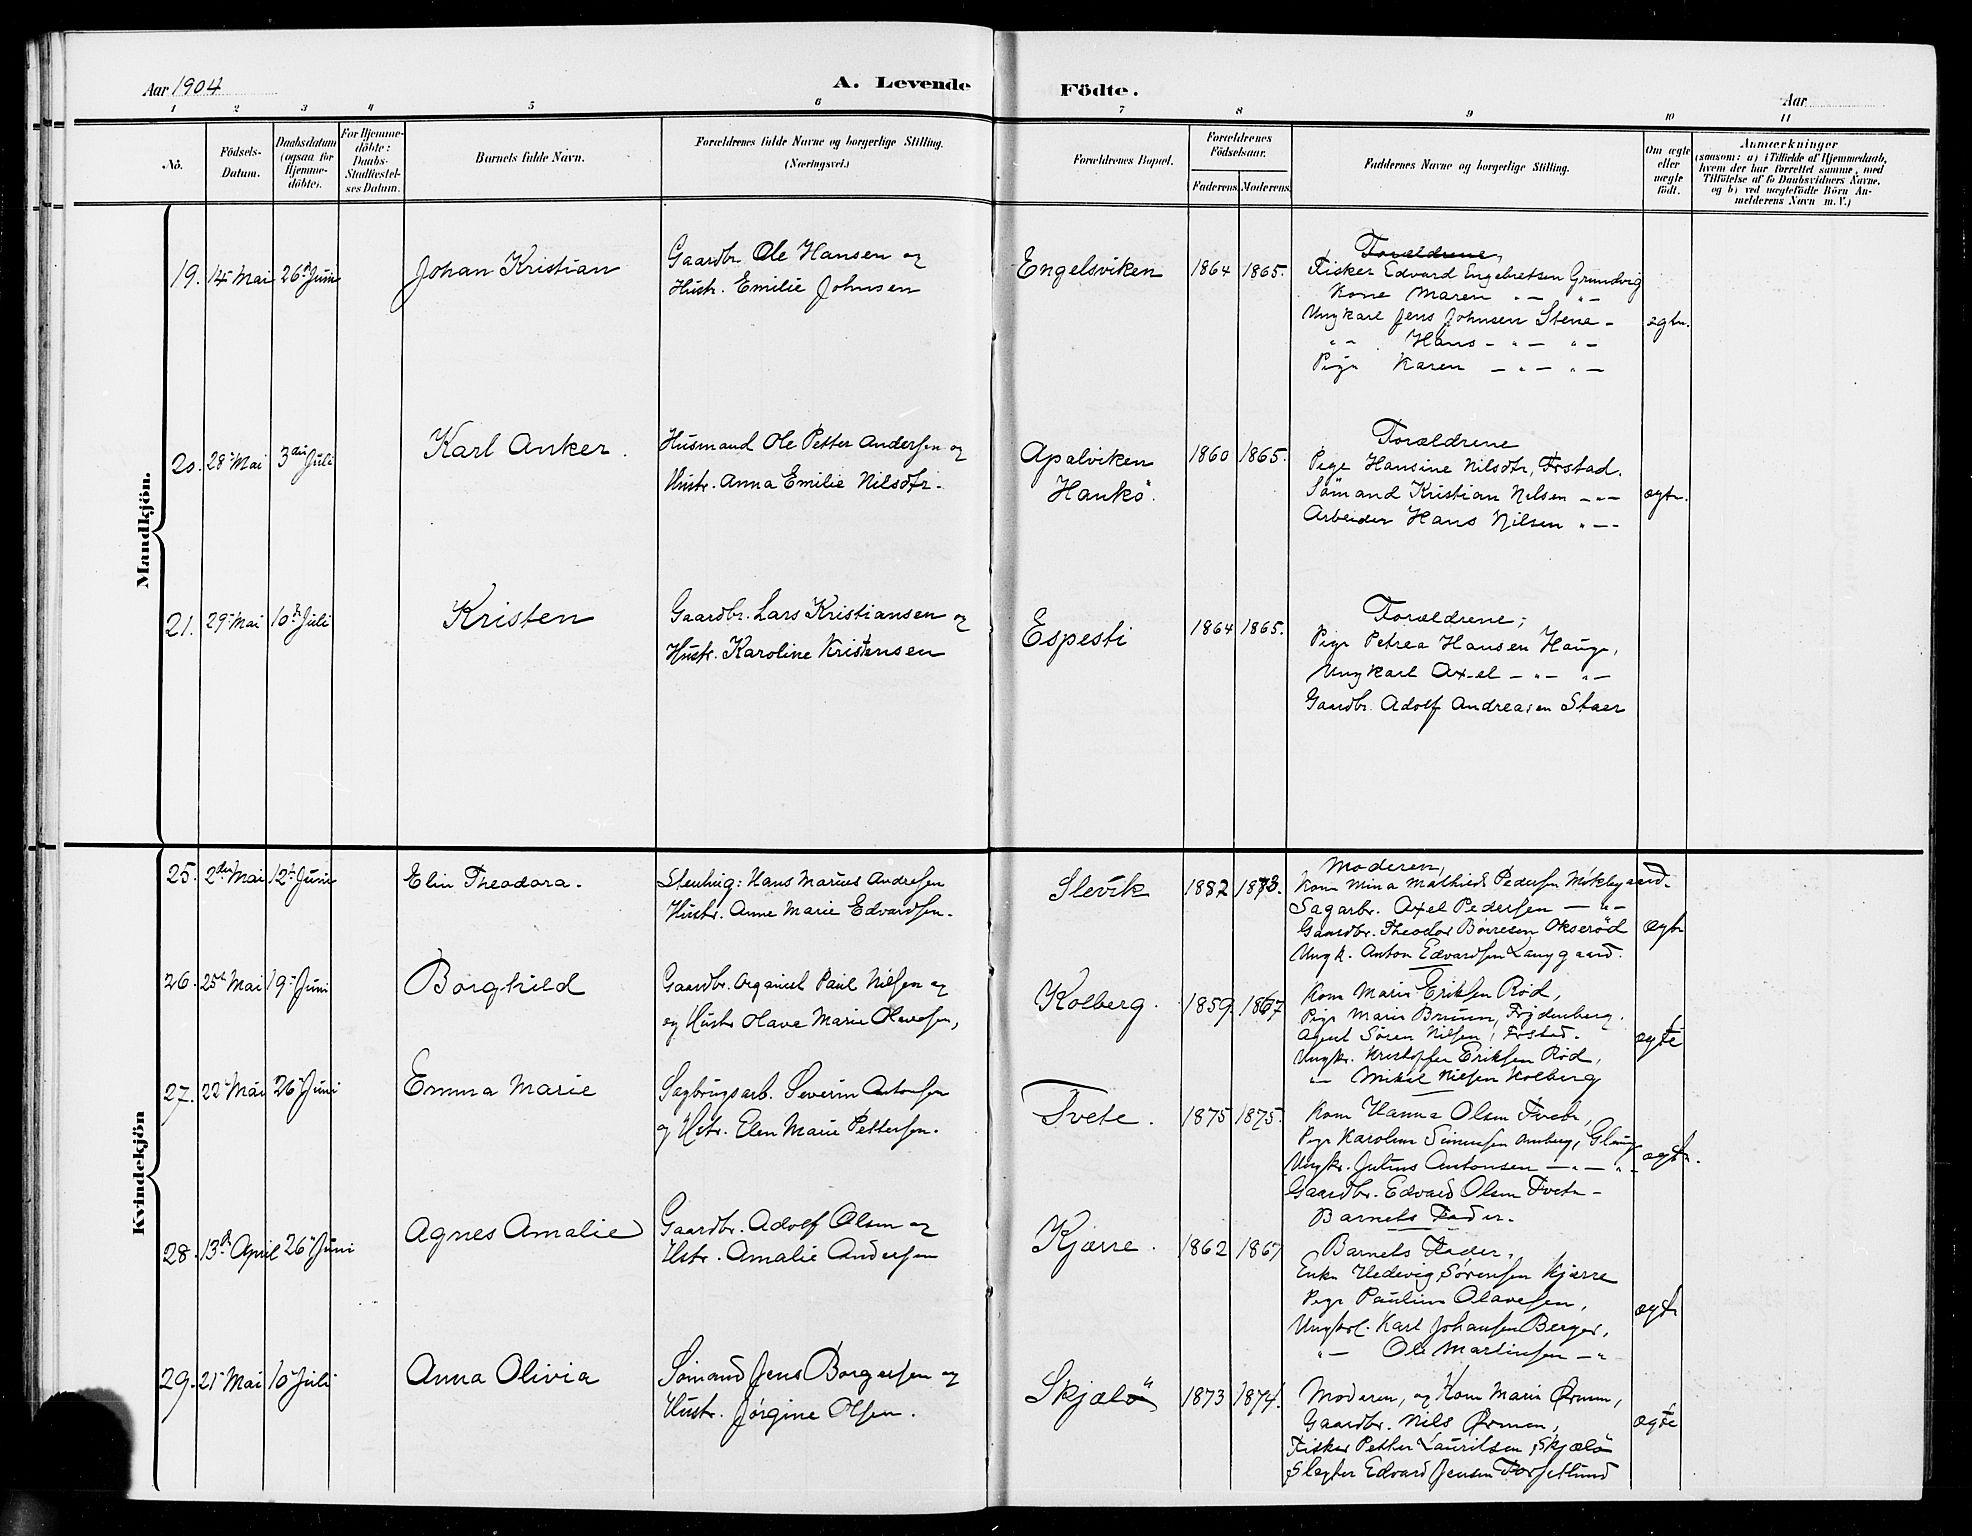 Aar 1904
A. Levende Födte.
Aar
1 2 3 4 5 6 7 8 9 10 11
No.
Födsels-Datum.
Daabsdatum (ogsaa for Hjemme-döbte).
For Hjemme-döbte: Daabs-Stadfæstel-ses Datum.
Barnets fulde Navn.
Forældrenes fulde Navne og borgerlige Stilling. (Næringsvei.)
Forældrenes Bopæl.
Forældrenes Födselsaar.
Faderens. Moderens.
Faddernes Navne og borgerlige Stilling.
Om ægte eller uægte födt.
Anmærkninger
(saasom: a) i Tilfælde af Hjemmedaab,
hvem der har forrettet samme, med
Tilföielse af to Daabsvidners Navne,
og b) ved uægtefödte Börn An-
melderens Navn m. V.)
Mandkjön.
19. 14- Mai 26- Juni
Johan Kristian
Gaardbr Ole Hansen og
Hustr. Emilie Johnsen
Engelsviken
1864 1865.
Forældrene,
Fisker Edvard Engebretsen Grundvig
Kone Maren " — "
Ungkarl Jens Johnsen Stene -
" - Hans - " — " —
Pige Karen — " — " —
ægte.
20. 28- Mai 3die Juli
Karl Anker.
Husmand Ole Petter Andersen og
Hustr. Anna Emilie Nilsdtr.
Apalviken
Hankö.
1860 1865.
Forældrene
Pige Hansine Nilsdtr,
Sömand Kristian Nilsen - " -
Arbeider Hans Nilsen " - -
ægte.
21. 29- Mai 10- Juli
Kristen
Gaardbr. Lars Kristiansen og
Hustr. Karoline Kristensen
Espesti
1864 1865.
Forældrene;
Pige Petrea Hansen Hauge,
Ungkarl Axel — " — " —
Gaardbr. Adolf Andreasen Staer
Kvindekjön
25. 2den Mai 12te Juni
Elin Theodora.
Stenhug: Hans Marius Andresen
Hustr. Anne Marie Edvardsen.
Slevik
1882 1873.
Moderen,
Kone Mina Mathilde Pedersen
Sagarbr. Axel Pedersen — " -
Gaardbr. Theodor Børresen Okserød
Ungk. Anton Edvardsen Langgaard.
ægte
26. 25te Mai 19- Juni
Borghild
Gaardbr. Organist Paul Nilsen og
og Hustr Olave Marie Olavesen,
Kolberg.
1859. 1867
Kone Marie Eriksen Rød,
Pige Marie Bruun, Frydenberg.
Agent Sören Nilsen,
Ungkr. Kristoffer Eriksen Rød,
" — Mikal Nilsen Kolberg
ægte
27. 22- Mai 26- Juni
Emma Marie
Sagbrugsarb. Severin Antonsen
og Hstr. Elen Marie Pettersen.
Tvete.
1875 1875.
Kone Hanna Olsen Tvete,
Pige Karoline Simensen
Ungkr. Julius Antonsen — " — "
Gaardbr. Edvard Olsen Tvete -
Barnets Fader.
ægte.
28. 13de April 26- Juni
Agnes Amalie
Gaardbr. Adolf Olsen og
Hstr. Amalie Andersen
Kjærre.
1862 1867
Barnets Fader,
Enke Hedevig Sørensen Kjærre
Pige Pauline Olavesen,
Ungkrl. Karl Johansen Berger,
" — Ole Martinsen — "
ægte
29. 21- Mai 10- Juli
Anna Olivia
Sømand Jens Borgersen og
Hustr. Jørgine Olsen.
Skjælö
1873 1874.
Moderen, og Kone Marie Ørmen,
Gaardbr. Nils Ørmen,
Fisker Petter Lauritsen, Skjælö
Slagter Edvard Jensen
ægte